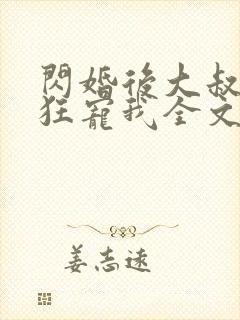 閃婚後大叔
狂寵我全文
姜志遠